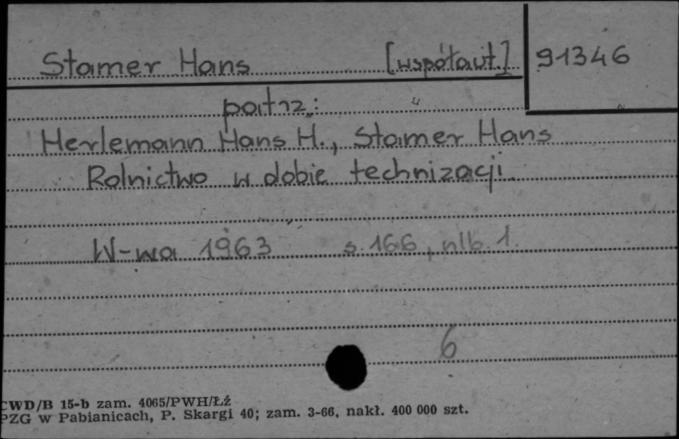 Stamer Hans [współaut.] 91346
patrz:
Herlemann Hans H., Stamer Hans
Rolnictwo w dobie technizacji
W-wa 1963 s. 166, nlb. 1.
6
CWD/B 15-b zam. 4065/PWH/Łź
PZG w Pabianicach, P. Skargi 40; zam. 3-66, nakł. 400 000 szt.